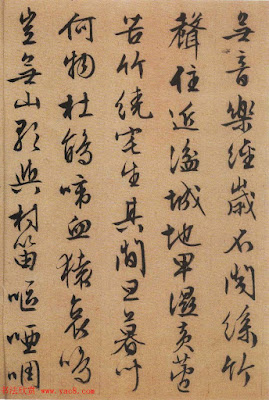 無音樂經歲不聞絲竹
聲住近湓城地卑濕黃蘆
苦竹繞宅生其間旦暮聞
何物杜鵑啼血猿哀鳴
豈無山歌與村笛嘔啞啁
www.yac8.com